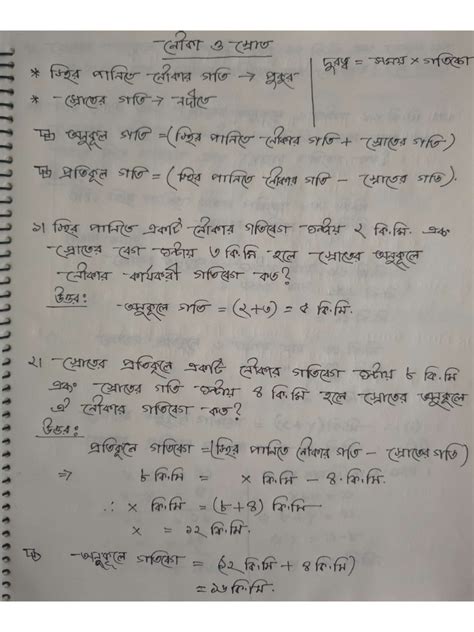 নৌকা ও স্রোত
দূরত্ব = সময় × গতিবেগ
* স্থির পানিতে নৌকার গতি → পুকুর
* স্রোতের গতি → নদীতে
অনুকূলে গতি = (স্থির পানিতে নৌকার গতি + স্রোতের গতি)
প্রতিকূলে গতি = (স্থির পানিতে নৌকার গতি - স্রোতের গতি).
১) স্থির পানিতে একটি নৌকার গতিবেগ ঘন্টায় ২ কি.মি. এবং
স্রোতের বেগ ঘন্টায় ৩ কি.মি হলে স্রোতের অনুকূলে
নৌকার কার্যকরী গতিবেগ কত?
উত্তর:
অনুকূলে গতি = (২+৩) = ৫ কি.মি.
২। স্রোতের প্রতিকূলে একটি নৌকার গতিবেগ ঘন্টায় ৮ কি.মি
এবং স্রোতের গতি ঘন্টায় ৪ কি.মি হলে স্রোতের অনুকূলে
ঐ নৌকার গতিবেগ কত?
উত্তর:
প্রতিকূলে গতিবেগ = (স্থির পানিতে নৌকার গতি - স্রোতের গতি)
⇒ ৮ কি.মি = x কি.মি - ৪ কি.মি.
∴ x কি.মি = (৮+৪) কি.মি
x = ১২ কি.মি.
অনুকূলে গতিবেগ = (১২ কি.মি + ৪ কি.মি)
= ১৬ কি.মি.